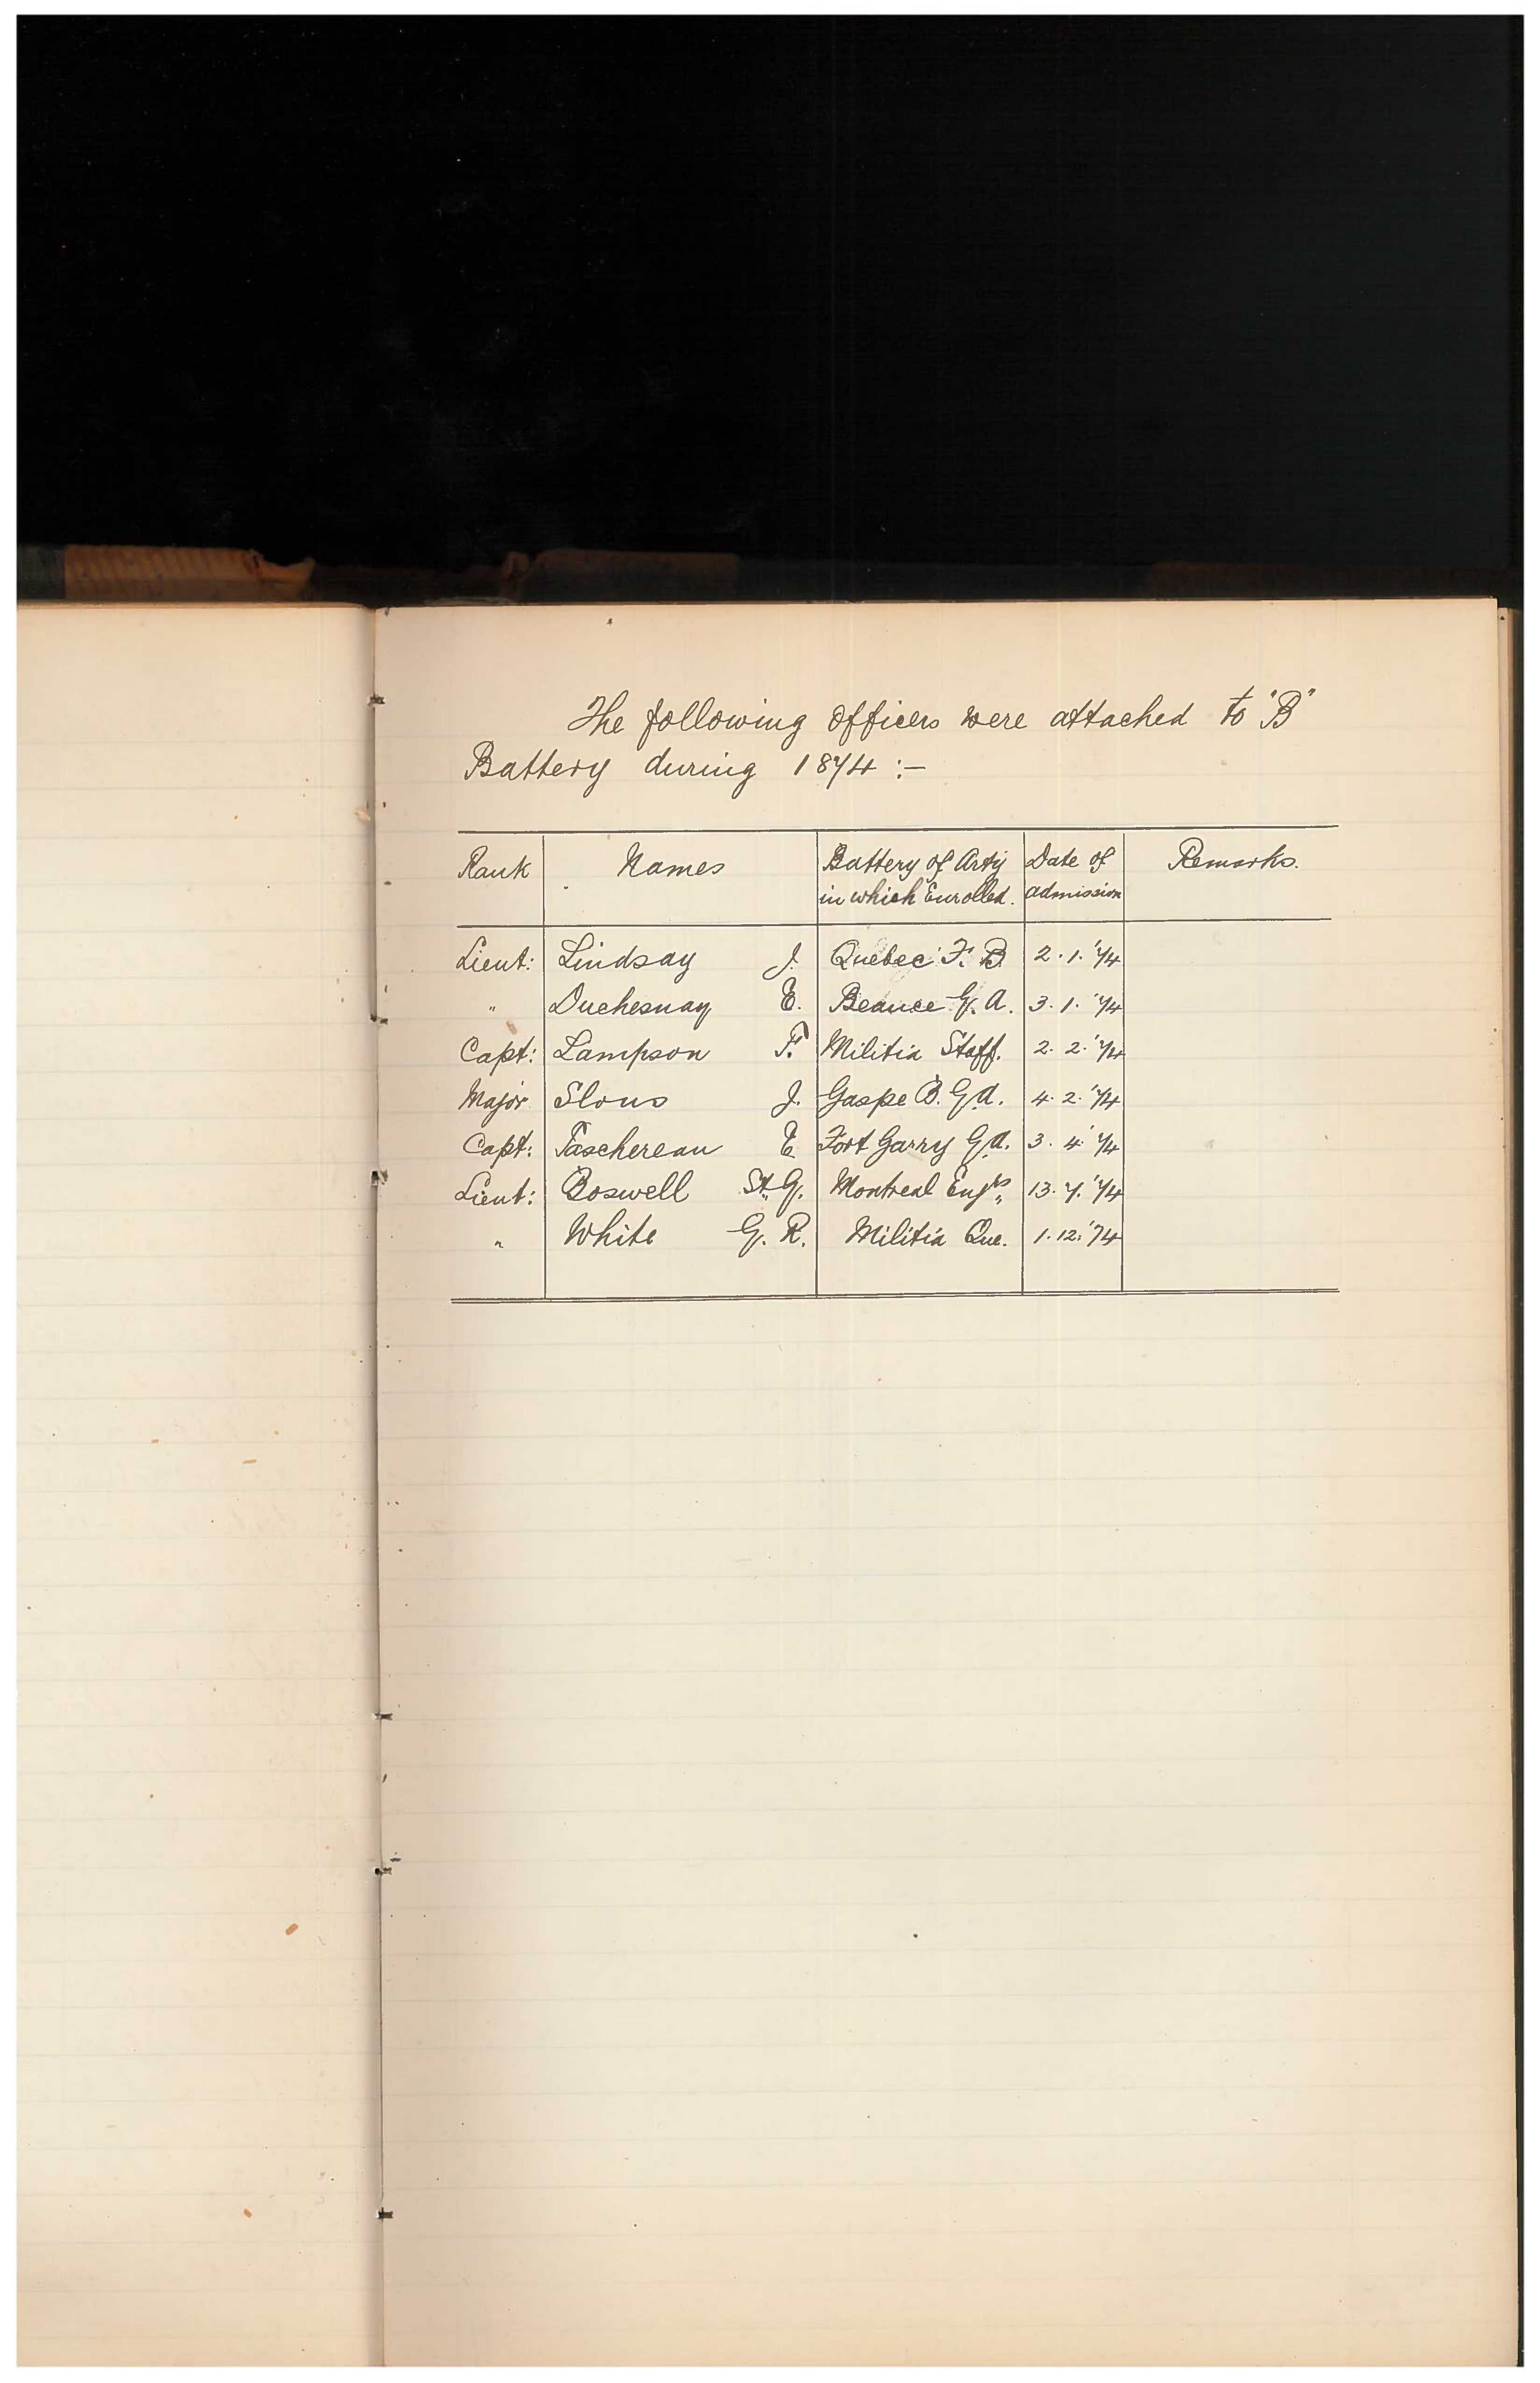 The following officers were attached to "B"
Battery during 1874 :-
Rank Names Battery of Arty Date of Remarks.
in which Enrolled. admission
Lieut: Lindsay J. Quebec F. B. 2. 1. '74
" Duchesnay E. Beauce G. A. 3. 1. '74
Capt: Lampson F. Militia Staff. 2. 2. '74
Major Slous J. Gaspe B. G.A. 4. 2. '74
Capt: Taschereau E. Fort Garry G.A. 3. 4. '74
Lieut: Boswell St. G. Montreal Engrs 13. 7. '74
" White G. R. Militia Que. 1. 12. '74